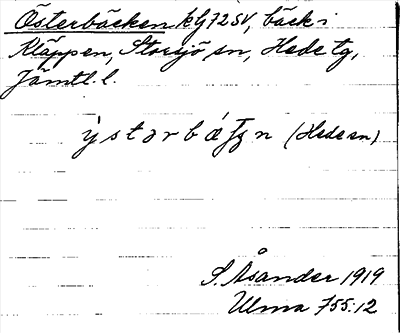 Österbäcken kg72SV, bäck i
Kläppen, Storsjö sn, Hede tg,
Jämtl. l.
(Hede sn)
S. Åsander 1919
Ulma 755:12